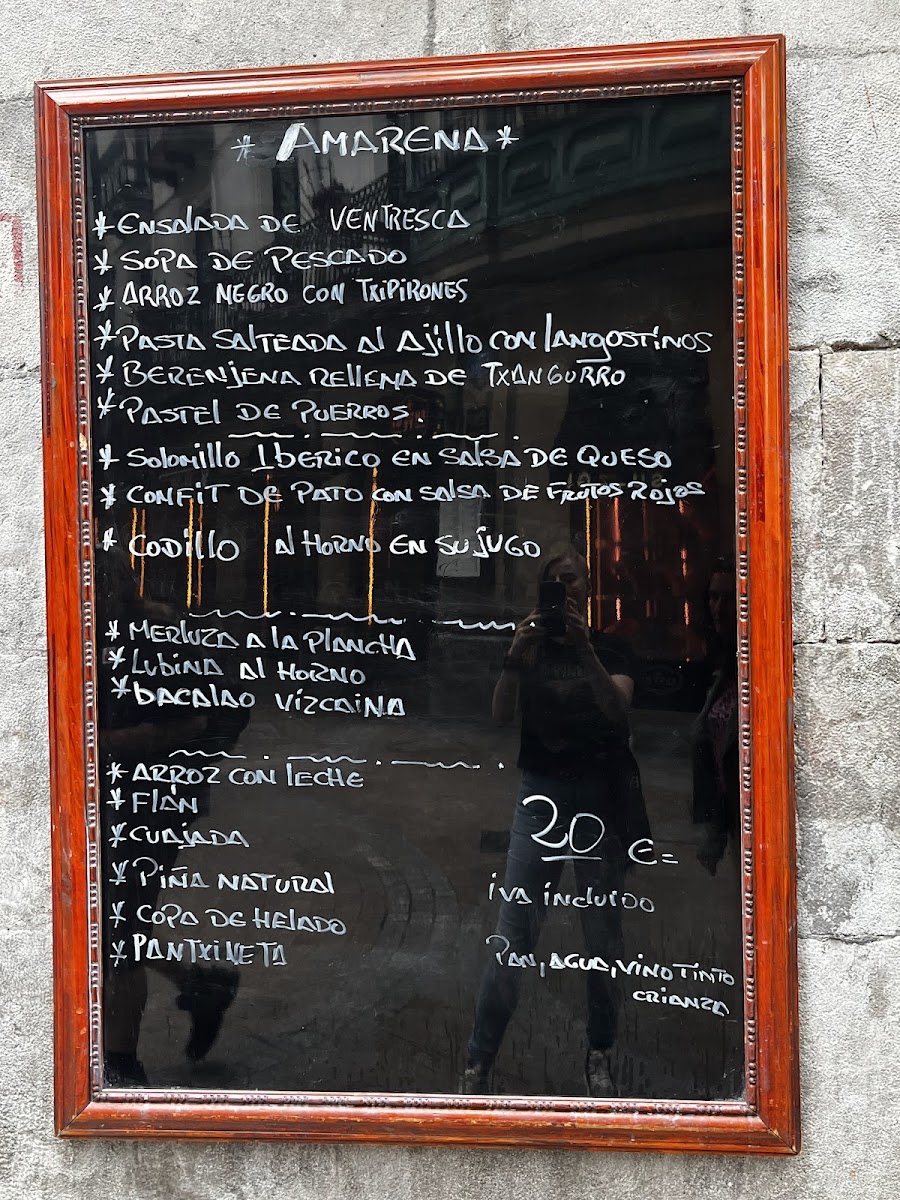 * AMARENA *
* ENSALADA DE VENTRESCA
* SOPA DE PESCADO
* ARROZ NEGRO CON TXIPIRONES
* PASTA SALTEADA Al Ajillo CON lANGOSTINOS
* BERENJENA RELLENA DE TXANGURRO
* PASTEl DE PUERROS.
* Solomillo IBERICO EN SALSA DE QUESO
* CONFIT DE PATO CON SALSA DE FRUTOS ROJOS
* CODILLO Al HORNO EN SU JUGO
* MERLUZA A LA PLANCHA
* LUBINA Al HORNO
* BACALAO VIZCAINA
* ARROZ CON LECHE
* FlAN
* CUAJADA
* PIÑA NATURAl
* COPA DE HELADO
* PANTXINETA
20 €=
iVA incluido
PAN, AGUA, VINO TINTO
CRIANZA